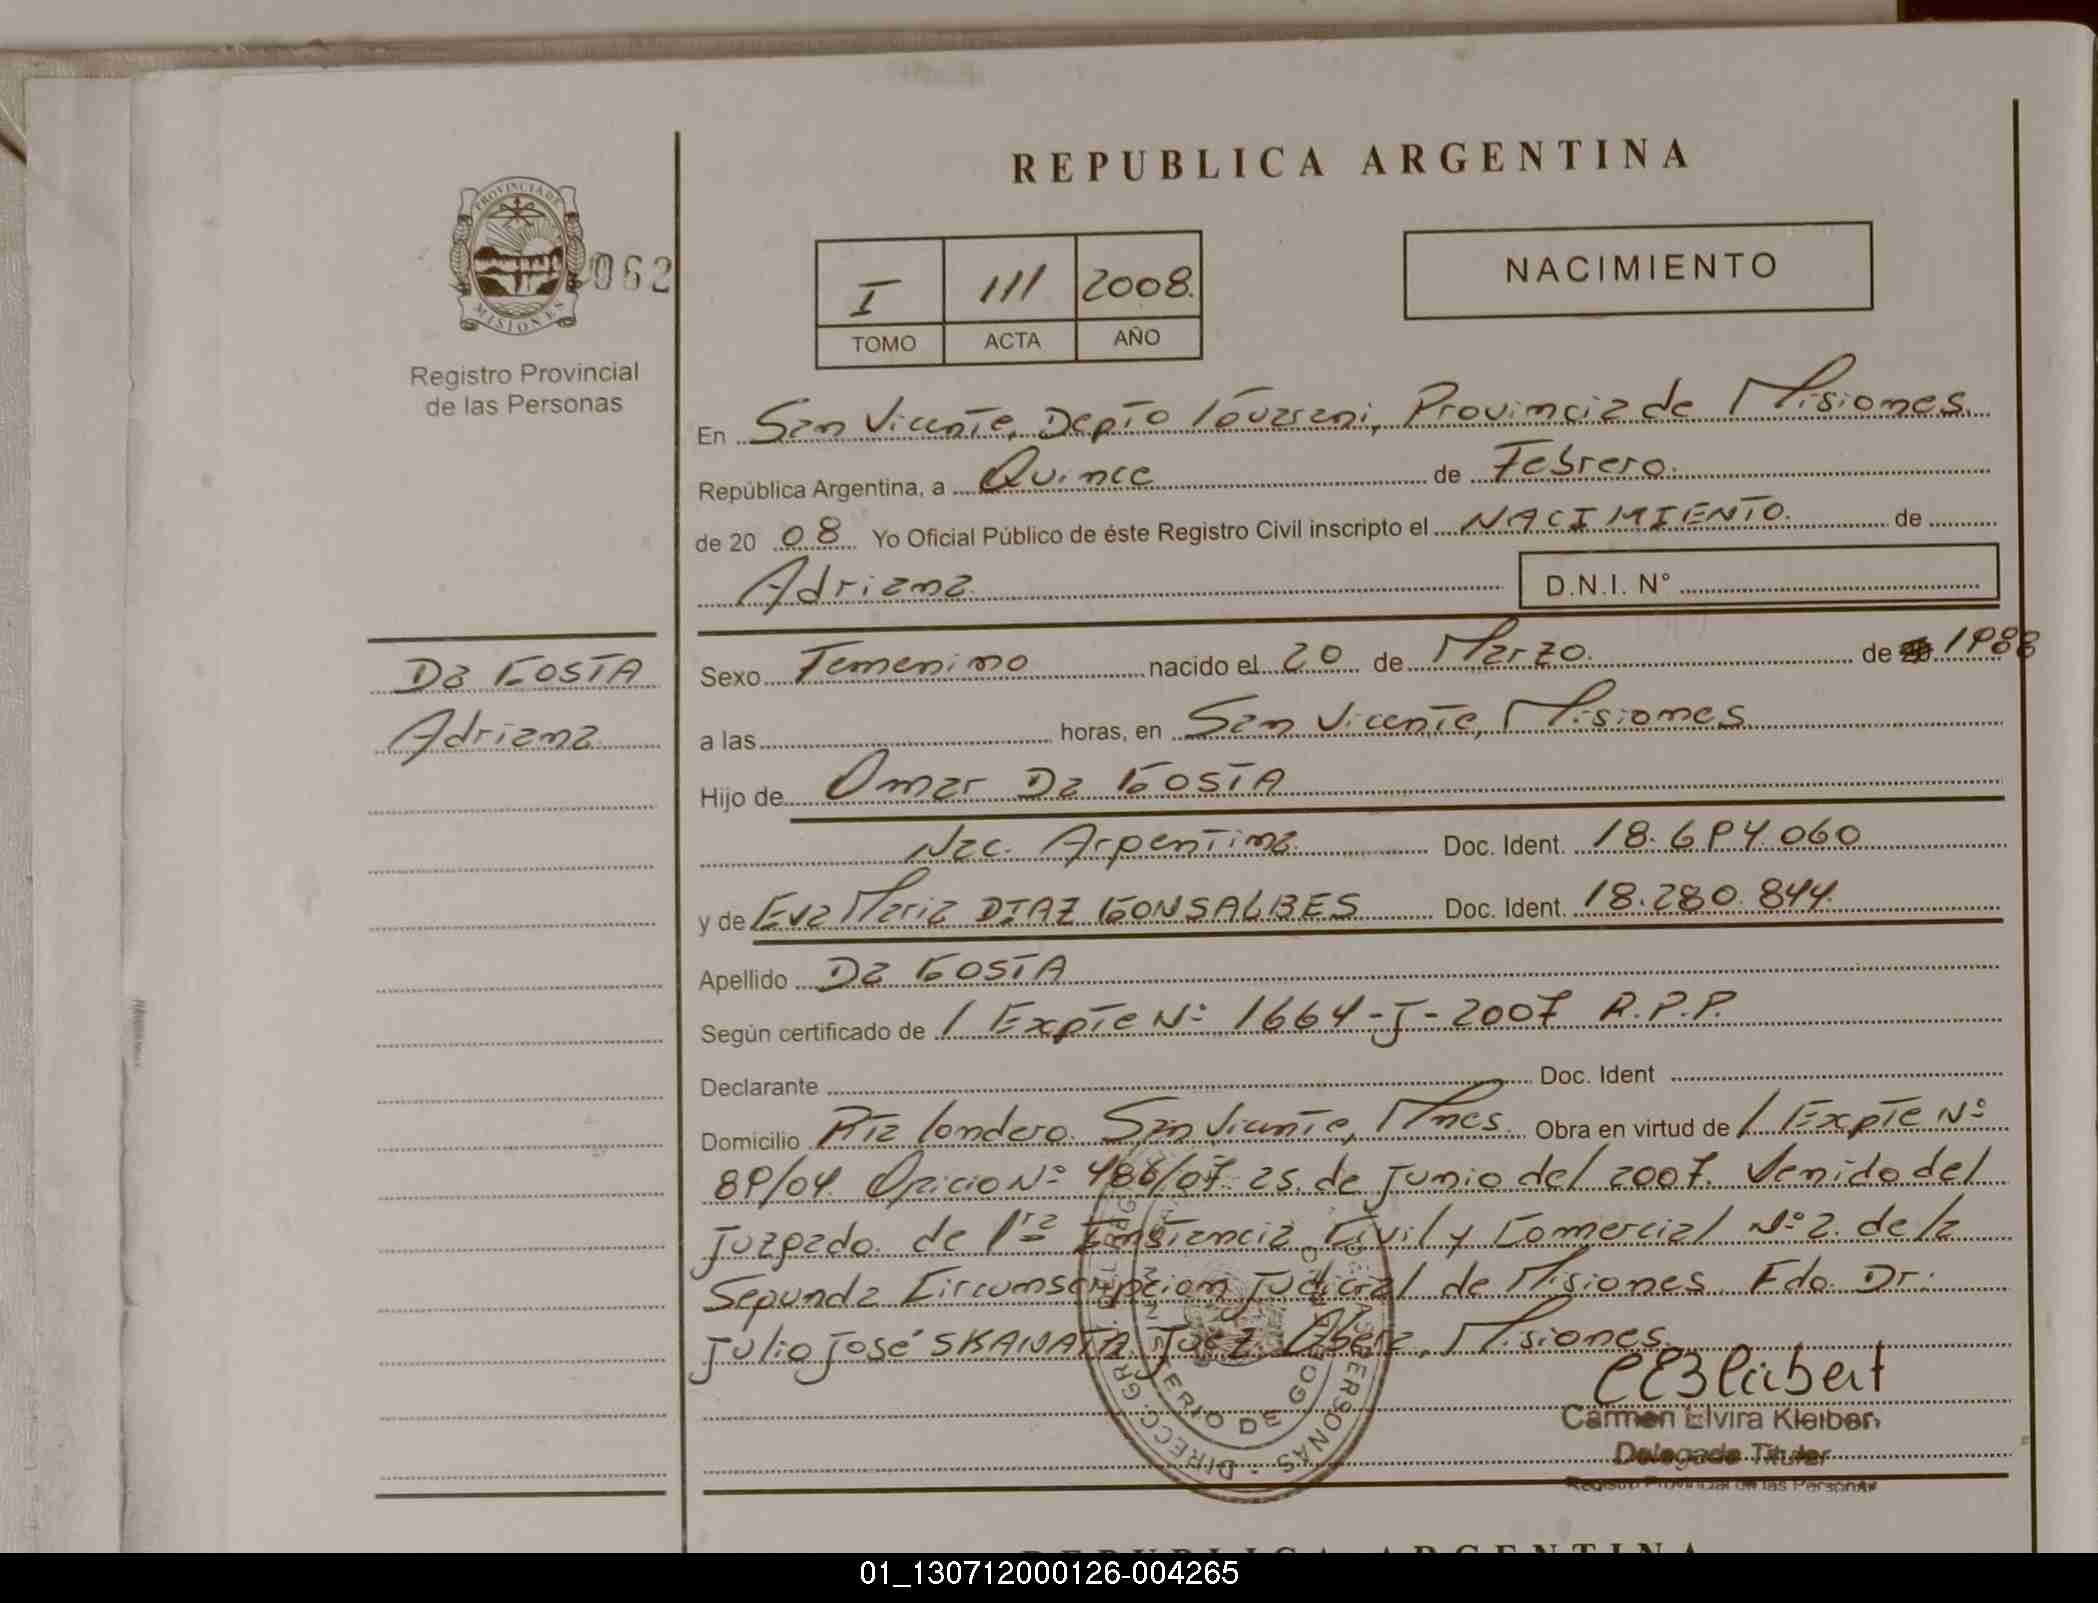 REPUBLICA ARGENTINA
PROVINCIA DE
MISIONES
062
Registro Provincial
de las Personas
I 111 2008.
TOMO ACTA AÑO
NACIMIENTO
En San Vicente, Depto Guarani, Provincia de Misiones.
República Argentina, a Quince de Febrero.
de 20 08 Yo Oficial Público de éste Registro Civil inscripto el NACIMIENTO. de
Adriana. D.N.I. N°
Da COSTA
Adriana
Sexo Femenino nacido el 20 de Marzo. de 1988
a las horas, en San Vicente, Misiones
Hijo de Omar Da COSTA
Nac. Argentina. Doc. Ident. 18.694.060
y de Eva Maria DIAZ GONSALBES Doc. Ident. 18.280.844.
Apellido Da COSTA
Según certificado de / Expte Nº 1664-J-2007 R.P.P.
Declarante Doc. Ident
Domicilio Pta Londero. San Vicente, Mnes. Obra en virtud de / Expte Nº
89/04. Oficio Nº 486/07. 25. de Junio del 2007. Venido del
Juzgado. de 1ra Instancia Civil y Comercial Nº 2. de la
Segunda Circunscripcion Judicial de Misiones. Fdo. Dr:
Julio José SKANATA. Juez. Obera, Misiones.
Carmen Elvira Kleiber
Delegada Titular
Registro Provincial de las Personas
REPUBLICA ARGENTINA
01_130712000126-004265